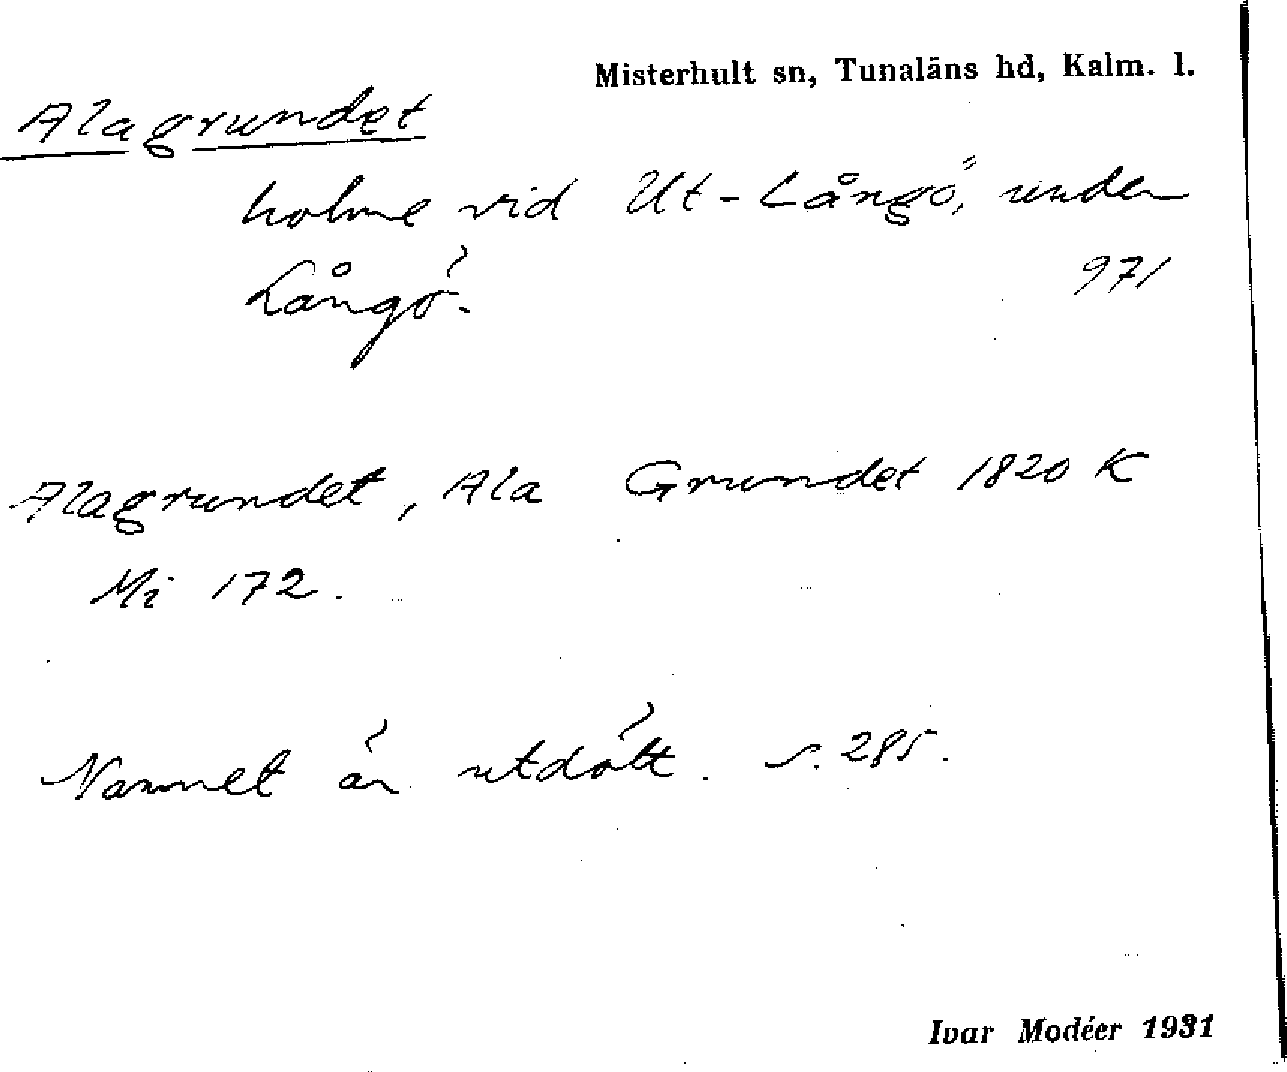 Misterhult sn, Tunaläns hd, Kalm. l.
Alagrundet
holme vid Ut-Långö, under
Långö.
971
Alagrundet, Ala Grundet 1820 K
Mi 172.
Namnet är utdött. s. 285.
Ivar Modéer 1931